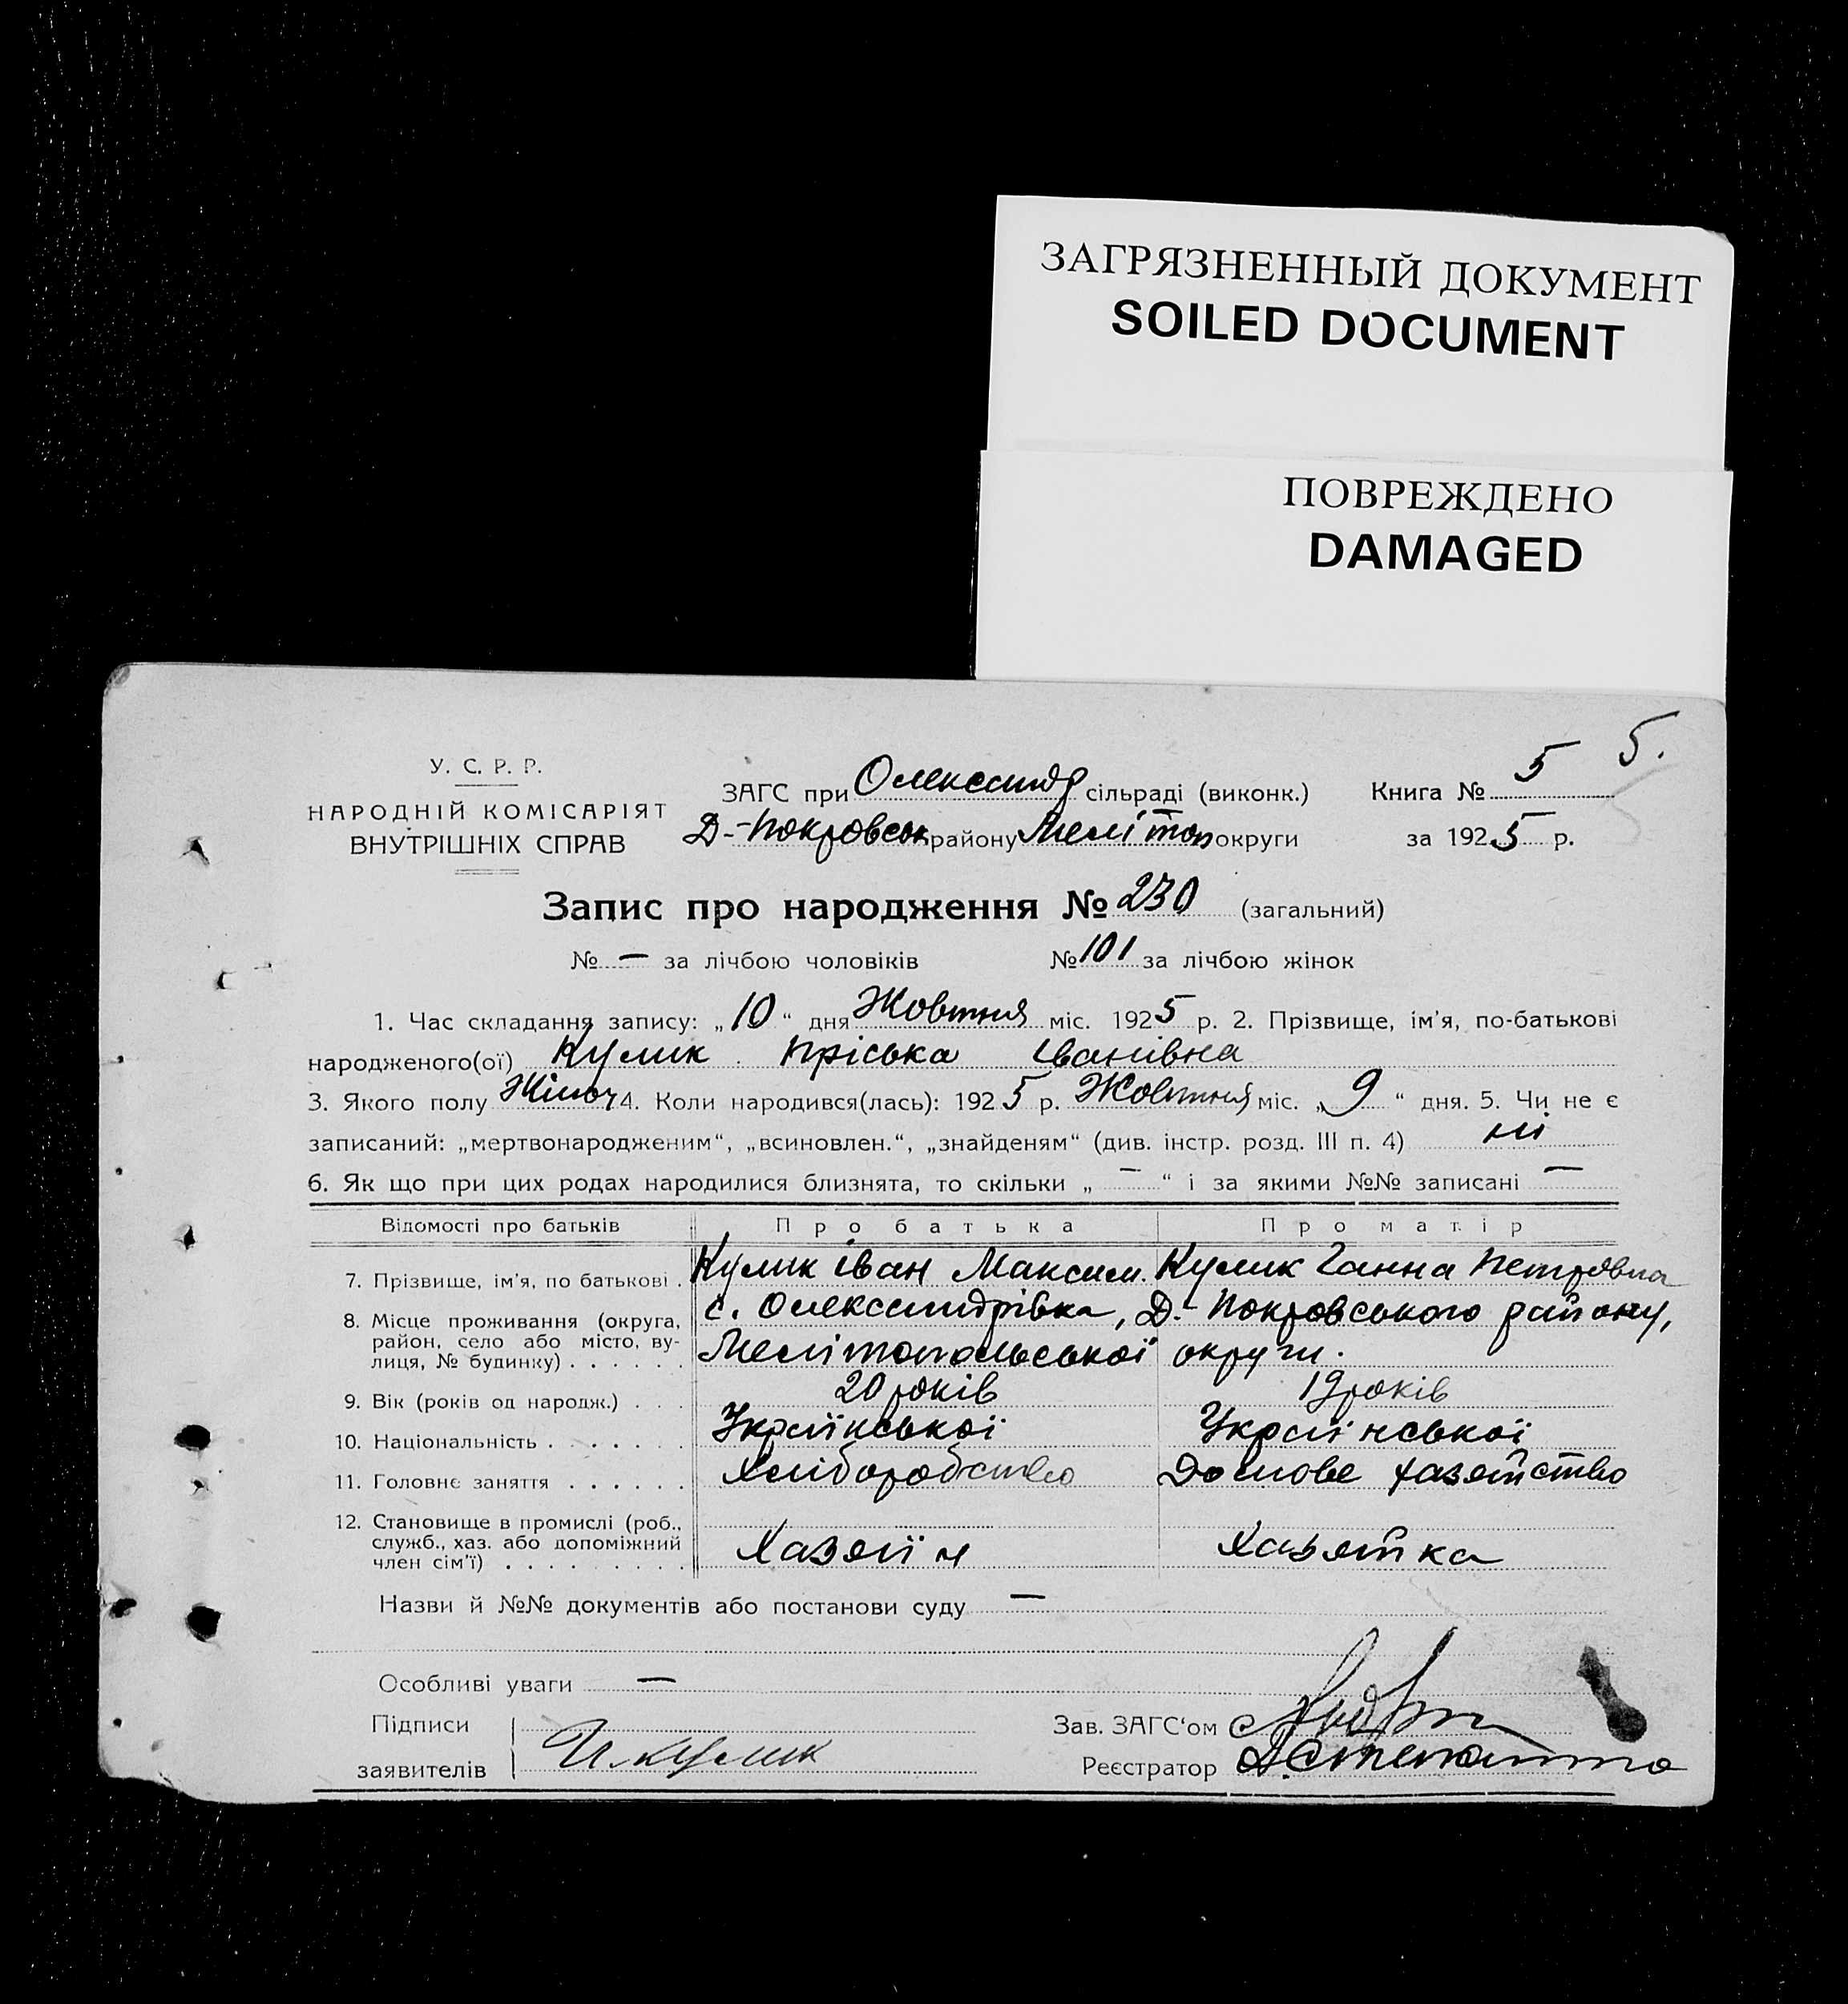 ЗАГРЯЗНЕННЫЙ ДОКУМЕНТ
SOILED DOCUMENT
ПОВРЕЖДЕНО
DAMAGED
5.
У. С. Р. Р.
НАРОДНІЙ КОМІСАРІЯТ
ВНУТРІШНІХ СПРАВ
ЗАГС при Олександр сільраді (виконк.) Книга № 5
Д.-Покровськ району Мелітоп округи за 1925 р.
Запис про народження № 230 (загальний)
№ — за лічбою чоловіків № 101 за лічбою жінок
1. Час складання запису: „10“ дня Жовтня міс. 1925 р. 2. Прізвище, ім'я, по-батькові
народженого(ої) Кулик Пріська Іванівна
3. Якого полу Жіноч 4. Коли народився(лась): 1925 р. Жовтня міс. „9“ дня. 5. Чи не є
записаний: „мертвонародженим“, „всиновлен.“, „знайденям“ (див. інстр. розд. III п. 4) ні
6. Як що при цих родах народилися близнята, то скільки „—“ і за якими №№ записані —
Відомості про батьків Про батька Про матір
7. Прізвище, ім'я, по батькові . Кулик Іван Максим. Кулик Ганна Петровна
8. Місце проживання (округа, район, село або місто, вулиця, № будинку) . . . . . . с. Олександрівка, Д.-Покровського району,
Мелітопольської округи.
9. Вік (років од народж.) . . . 20 років 19 років
10. Національність . . . . . . . Української Української
11. Головне заняття . . . . . . Хліборобство Домове хазяйство
12. Становище в промислі (роб., служб., хаз. або допоміжний член сім'ї) . . . . . . . . . Хазяїн Хазяйка
Назви й №№ документів або постанови суду —
Особливі уваги —
Підписи заявителів И Кулик
Зав. ЗАГС'ом
Реєстратор